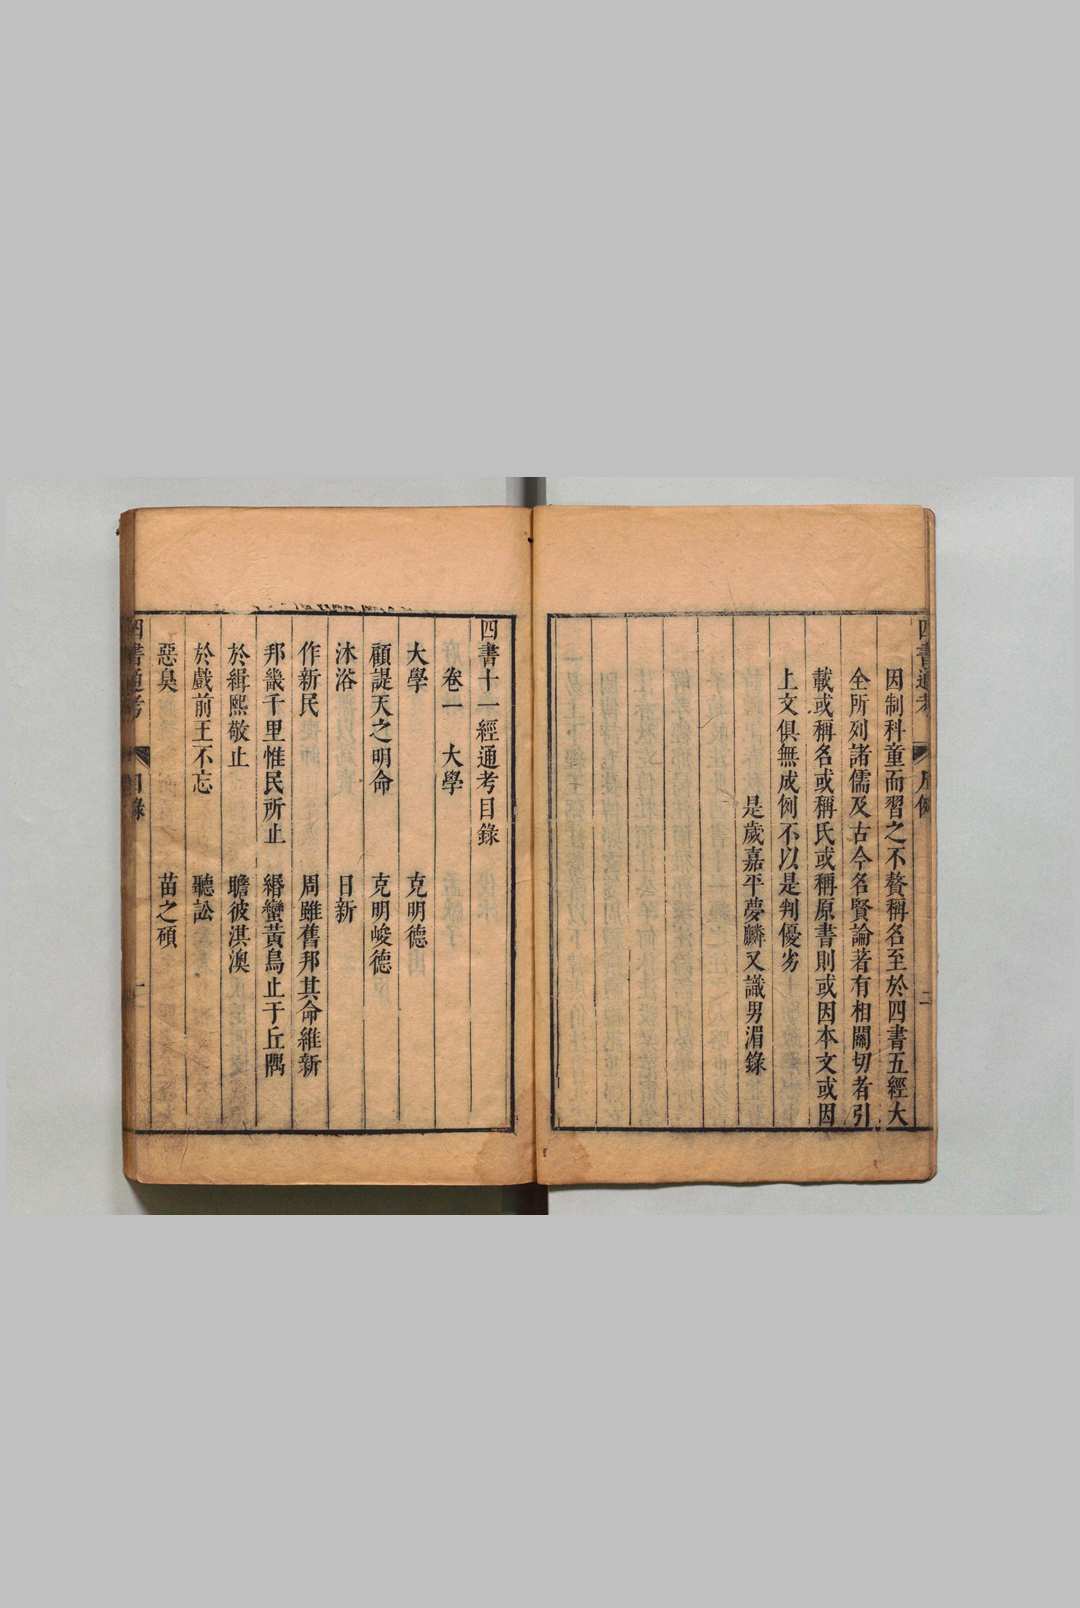 因制科童而習之不贅稱名至於四書五經大
全所列諸儒及古今名賢論著有相關切者引
載或稱名或稱氏或稱原書則或因本文或因
上文俱無成例不以是判優劣
是歲嘉平夢麟又識男湄錄
四書十一經通考目錄
卷一 大學
大學 克明德
顧諟天之明命 克明峻德
沐浴 日新
作新民 周雖舊邦其命維新
邦畿千里惟民所止 緡蠻黃鳥止于丘隅
於緝熙敬止 瞻彼淇澳
於戲前王不忘 聽訟
惡臭 苗之碩
四書通考 目錄 一